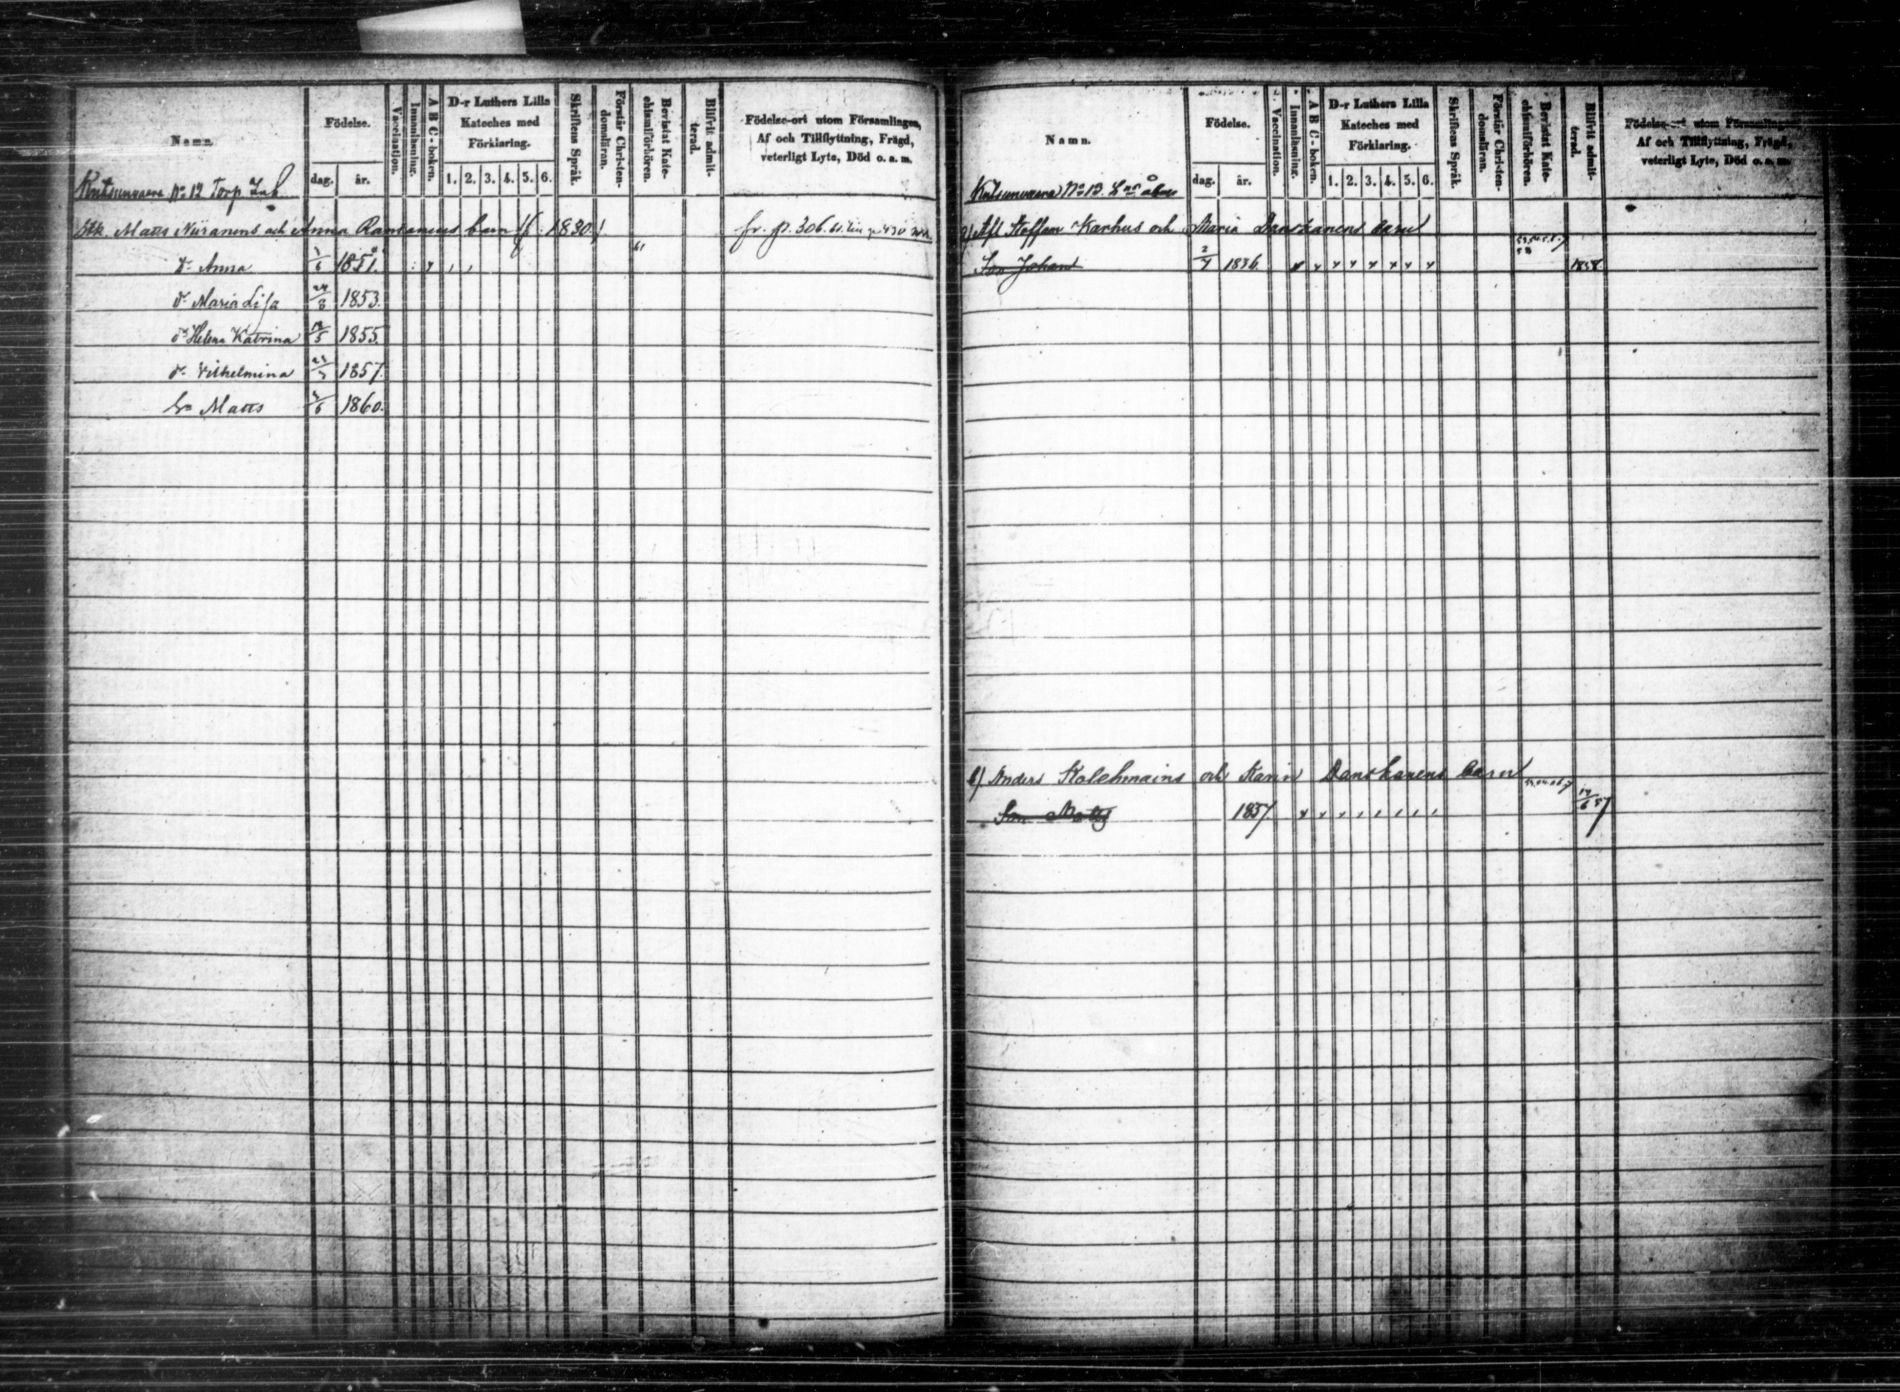 Namn.
Födelse.
dag. år.
Vaccination.
Innanläsning.
A B C-boken.
D-r Luthers Lilla
Kateches med
Förklaring.
1. 2. 3. 4. 5. 6.
Skriftens Språk.
Förstår Christen-
domsläran.
Bevistat Kate-
chismiförhören.
Blifvit admit-
terad.
Födelse-ort utom Församlingen,
Af och Tillflyttning, Frägd,
veterligt Lyte, Död o. a. m.
No 12 Torp
Matts Niiranens och Anna Rantanens barn 1830
fr. p. 306.
Dr Anna 1851.
dr Maria Lisa 24/8 1853.
dr Helena Katrina 1855.
dr Vilhelmina 1857.
Sn Matts 1860.
Namn.
Födelse.
dag. år.
Vaccination.
Innanläsning.
A B C-boken.
D-r Luthers Lilla
Kateches med
Förklaring.
1. 2. 3. 4. 5. 6.
Skriftens Språk.
Förstår Christen-
domsläran.
Bevistat Kate-
chismiförhören.
Blifvit admit-
terad.
Födelse-ort utom Församlingen,
Af och Tillflyttning, Frägd,
veterligt Lyte, Död o. a. m.
a) Afl Staffan Karhus och Maria Danskanens barn
Son Johan 1836. 1858
b) Anders och Karin Danskanens barn
Son Matts 1837